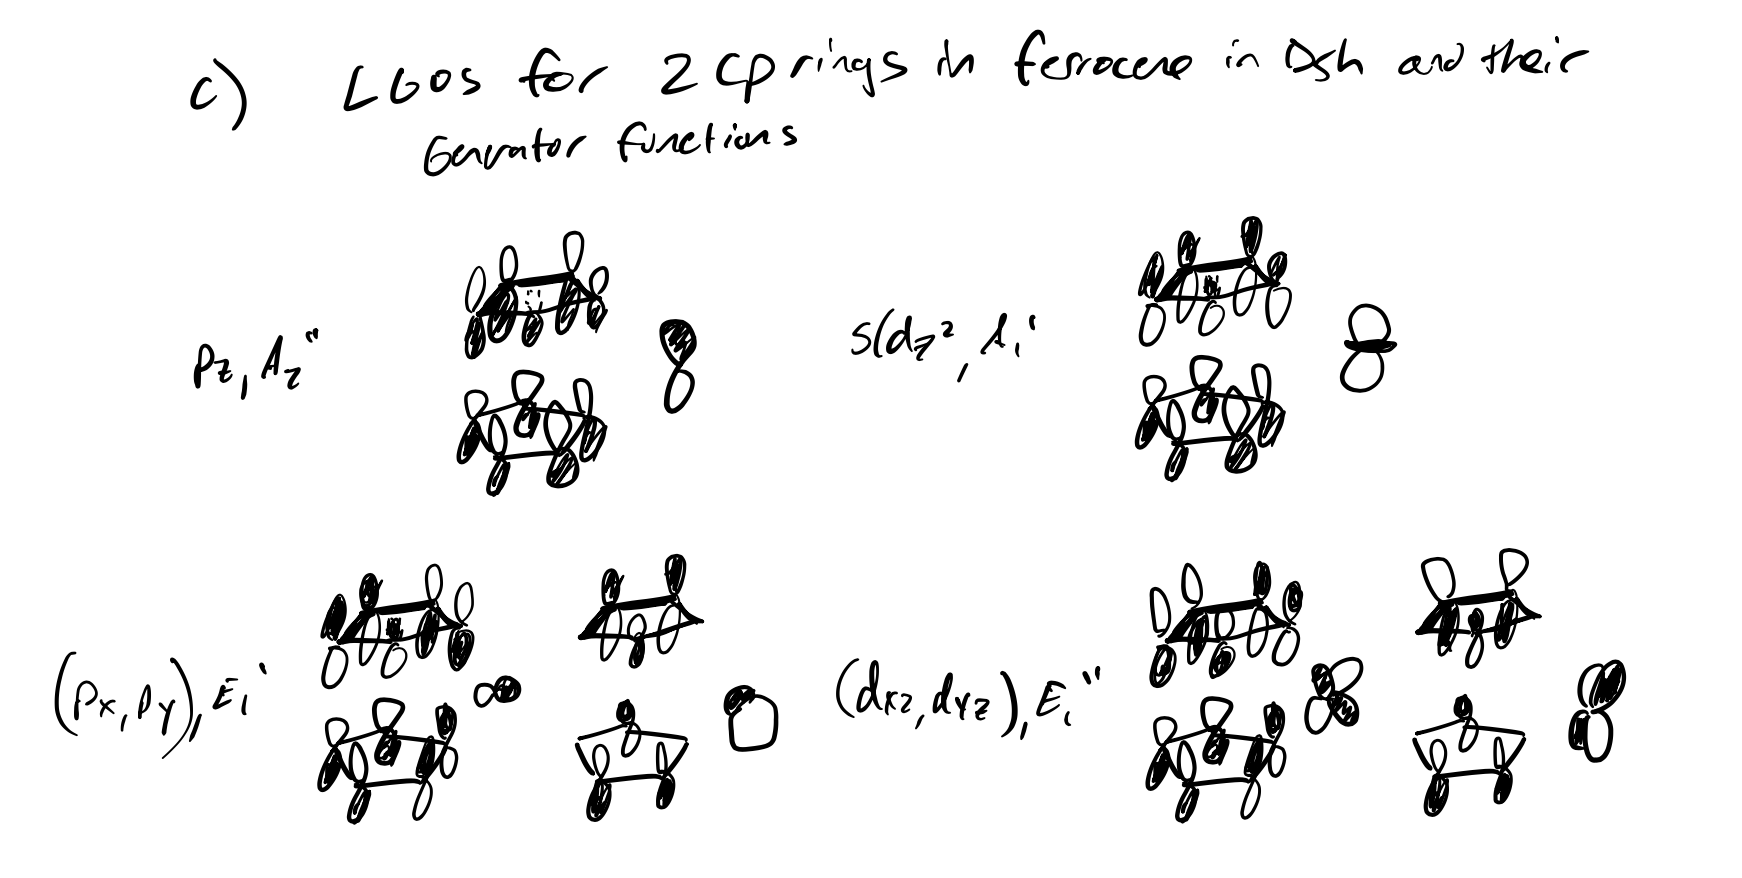 c) LGOs for 2 Cp rings in ferrocene in D5h and their
Generator functions
Pz, A2"
s(dz², A1'
(Px, Py), E1'
(dxz, dyz), E1"